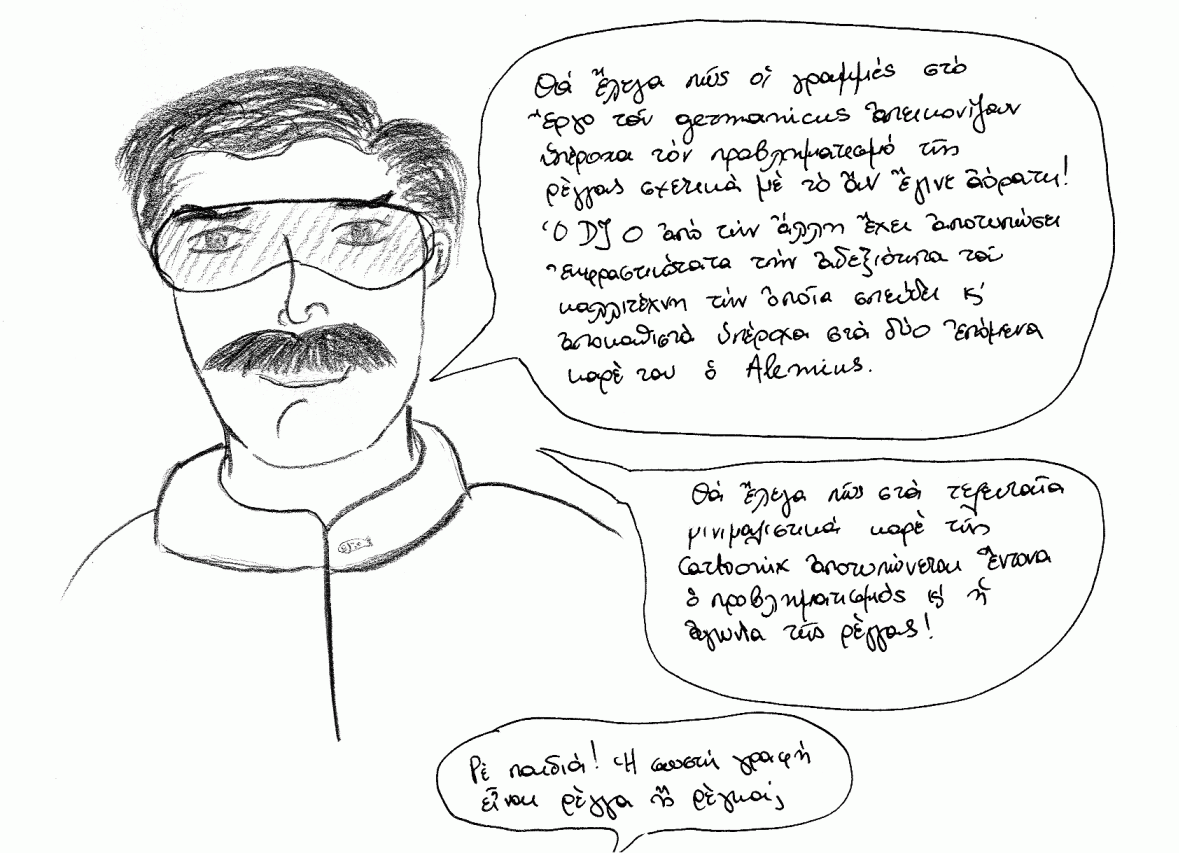 Θά ἔλεγα πῶς οἱ γραμμές στό
ἔργο τοῦ germanicus ἀπεικονίζουν
ὑπέροχα τὸν προβληματισμό τῆς
ρέγγας σχετικὰ μὲ τὸ ἂν ἔγινε ἀόρατη!
Ὁ DJ ο ἀπὸ τὴν ἄλλη ἔχει ἀποτυπώσει
ἐκφραστικότατα τὴν ἀδεξιότητα τοῦ
καλλιτέχνη τὴν ὁποία σπεύδει κ'
ἀποκαθιστὰ ὑπέροχα στὰ δύο ἑπόμενα
καρὲ του ὁ Alemius.
Θά ἔλεγα πῶς στὰ τελευταῖα
μινιμαλιστικά καρὲ τῆς
cartoonix ἀποτυπώνεται ἔντονα
ὁ προβληματισμὸς κ' ἡ
ἀγωνία τῆς ρὲγγας!
Ρὲ παιδιὰ! Ἡ σωστὴ γραφὴ
εἶναι ρὲγγα ἢ ρὲγκα;